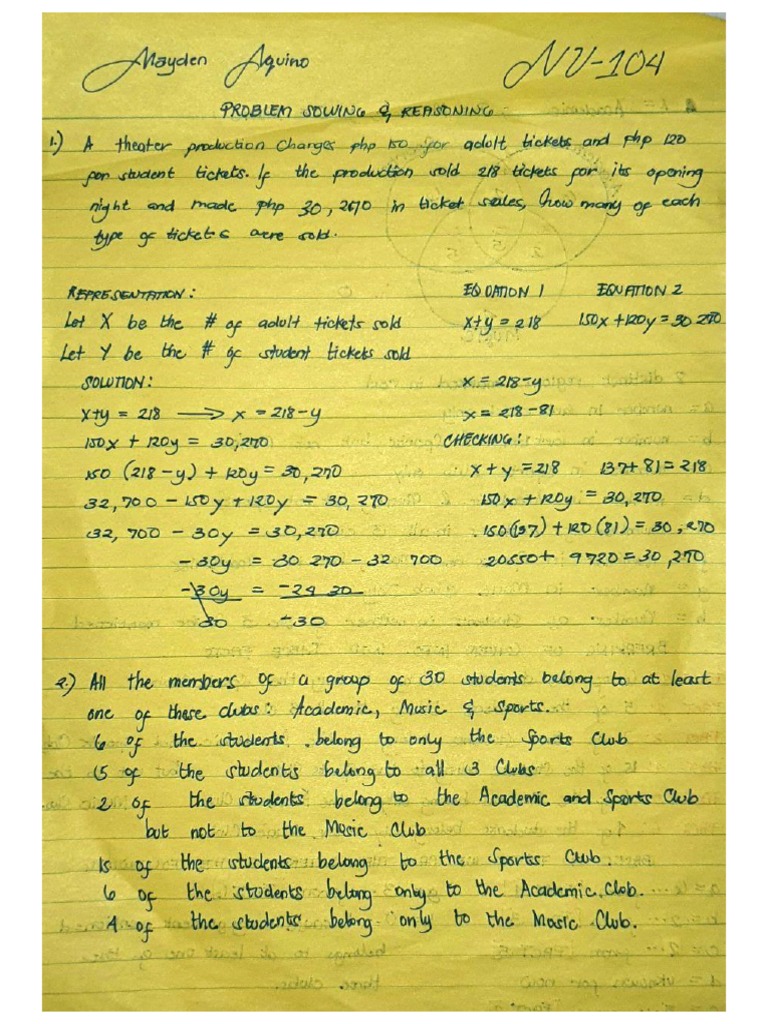 Mayden Aquino NU-104
PROBLEM SOLVING & REASONING
1.) A theater production charges php 150 for adult tickets and php 120
per student tickets. If the production sold 218 tickets for its opening
night and made php 30,270 in ticket sales, how many of each
type of tickets were sold.
REPRESENTATION: EQUATION 1 EQUATION 2
Let X be the # of adult tickets sold x+y = 218 150x + 120y = 30 270
Let Y be the # of student tickets sold
SOLUTION: x = 218-y
x+y = 218 → x = 218-y x = 218-81
150x + 120y = 30,270 CHECKING:
150 (218-y) + 120y = 30,270 x + y = 218 137+81 = 218
32,700 - 150y + 120y = 30,270 150x + 120y = 30,270
32,700 - 30y = 30,270 150(137) + 120 (81) = 30,270
-30y = 30 270 - 32 700 20550 + 9720 = 30,270
-30y = -24 30
30 -30
2.) All the members of a group of 30 students belong to at least
one of these clubs: Academic, Music & Sports.
6 of the students belong to only the Sports Club
5 of the students belong to all 3 Clubs
2 of the students belong to the Academic and Sports Club
but not to the Music Club
15 of the students belong to the Sports Club.
6 of the students belong only to the Academic Club.
4 of the students belong only to the Music Club.